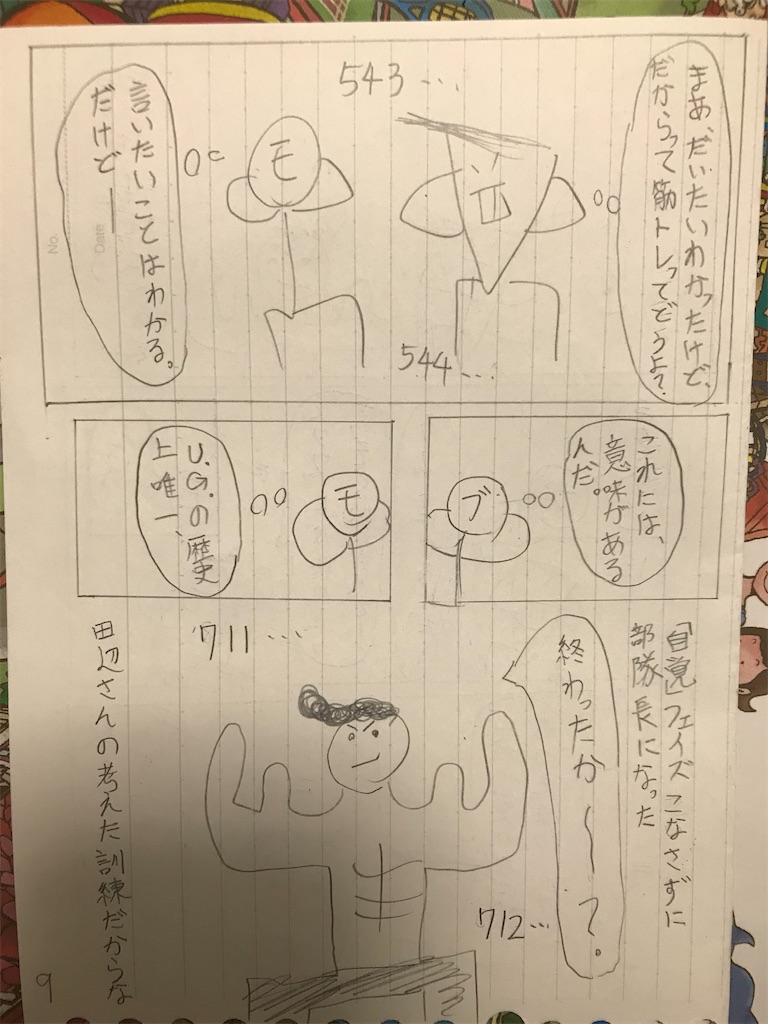 まあ、だいたいわかったけど、
だからって筋トレってどうよ?
543…
544…
モ
言いたいことはわかる。
だけど――
No.
Date
これには、
意味がある
んだ。
ブ
モ
U.G.の歴史
上唯一、
「自覚」フェイズこなさずに
部隊長になった
終わったか〜?。
711…
712…
田辺さんの考えた訓練だからな
9